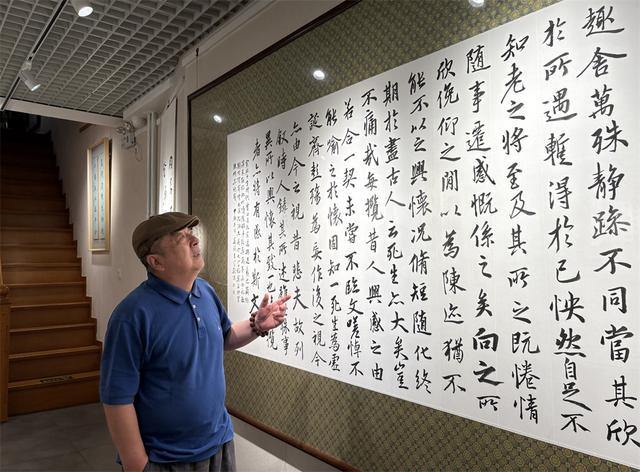 趣舍萬殊静躁不同當其欣
於所遇輒得於己怏然自足不
知老之將至及其所之既惓情
隨事遷感慨係之矣向之所
欣俛仰之閒以為陳迹猶不
能不以之興懷況脩短随化終
期於盡古人云死生亦大矣豈
不痛哉每攬昔人興感之由
若合一契未嘗不臨文嗟悼不
能喻之於懷固知一死生為虛
誕齊彭殤為妄作後之視今
亦由今之視昔悲夫故列
叙時人錄其所述雖殊事
異所以興懷其致一也攬
者亦將有感於斯文